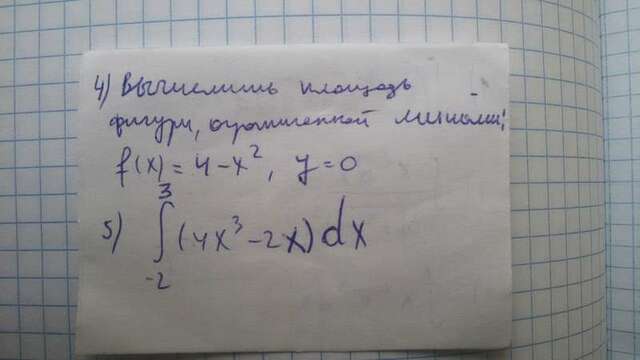 4) Вычислить площадь
фигуры, ограниченной линиями:
f(x) = 4 - x², y = 0
5) ∫₋₂³ (4x³ - 2x) dx